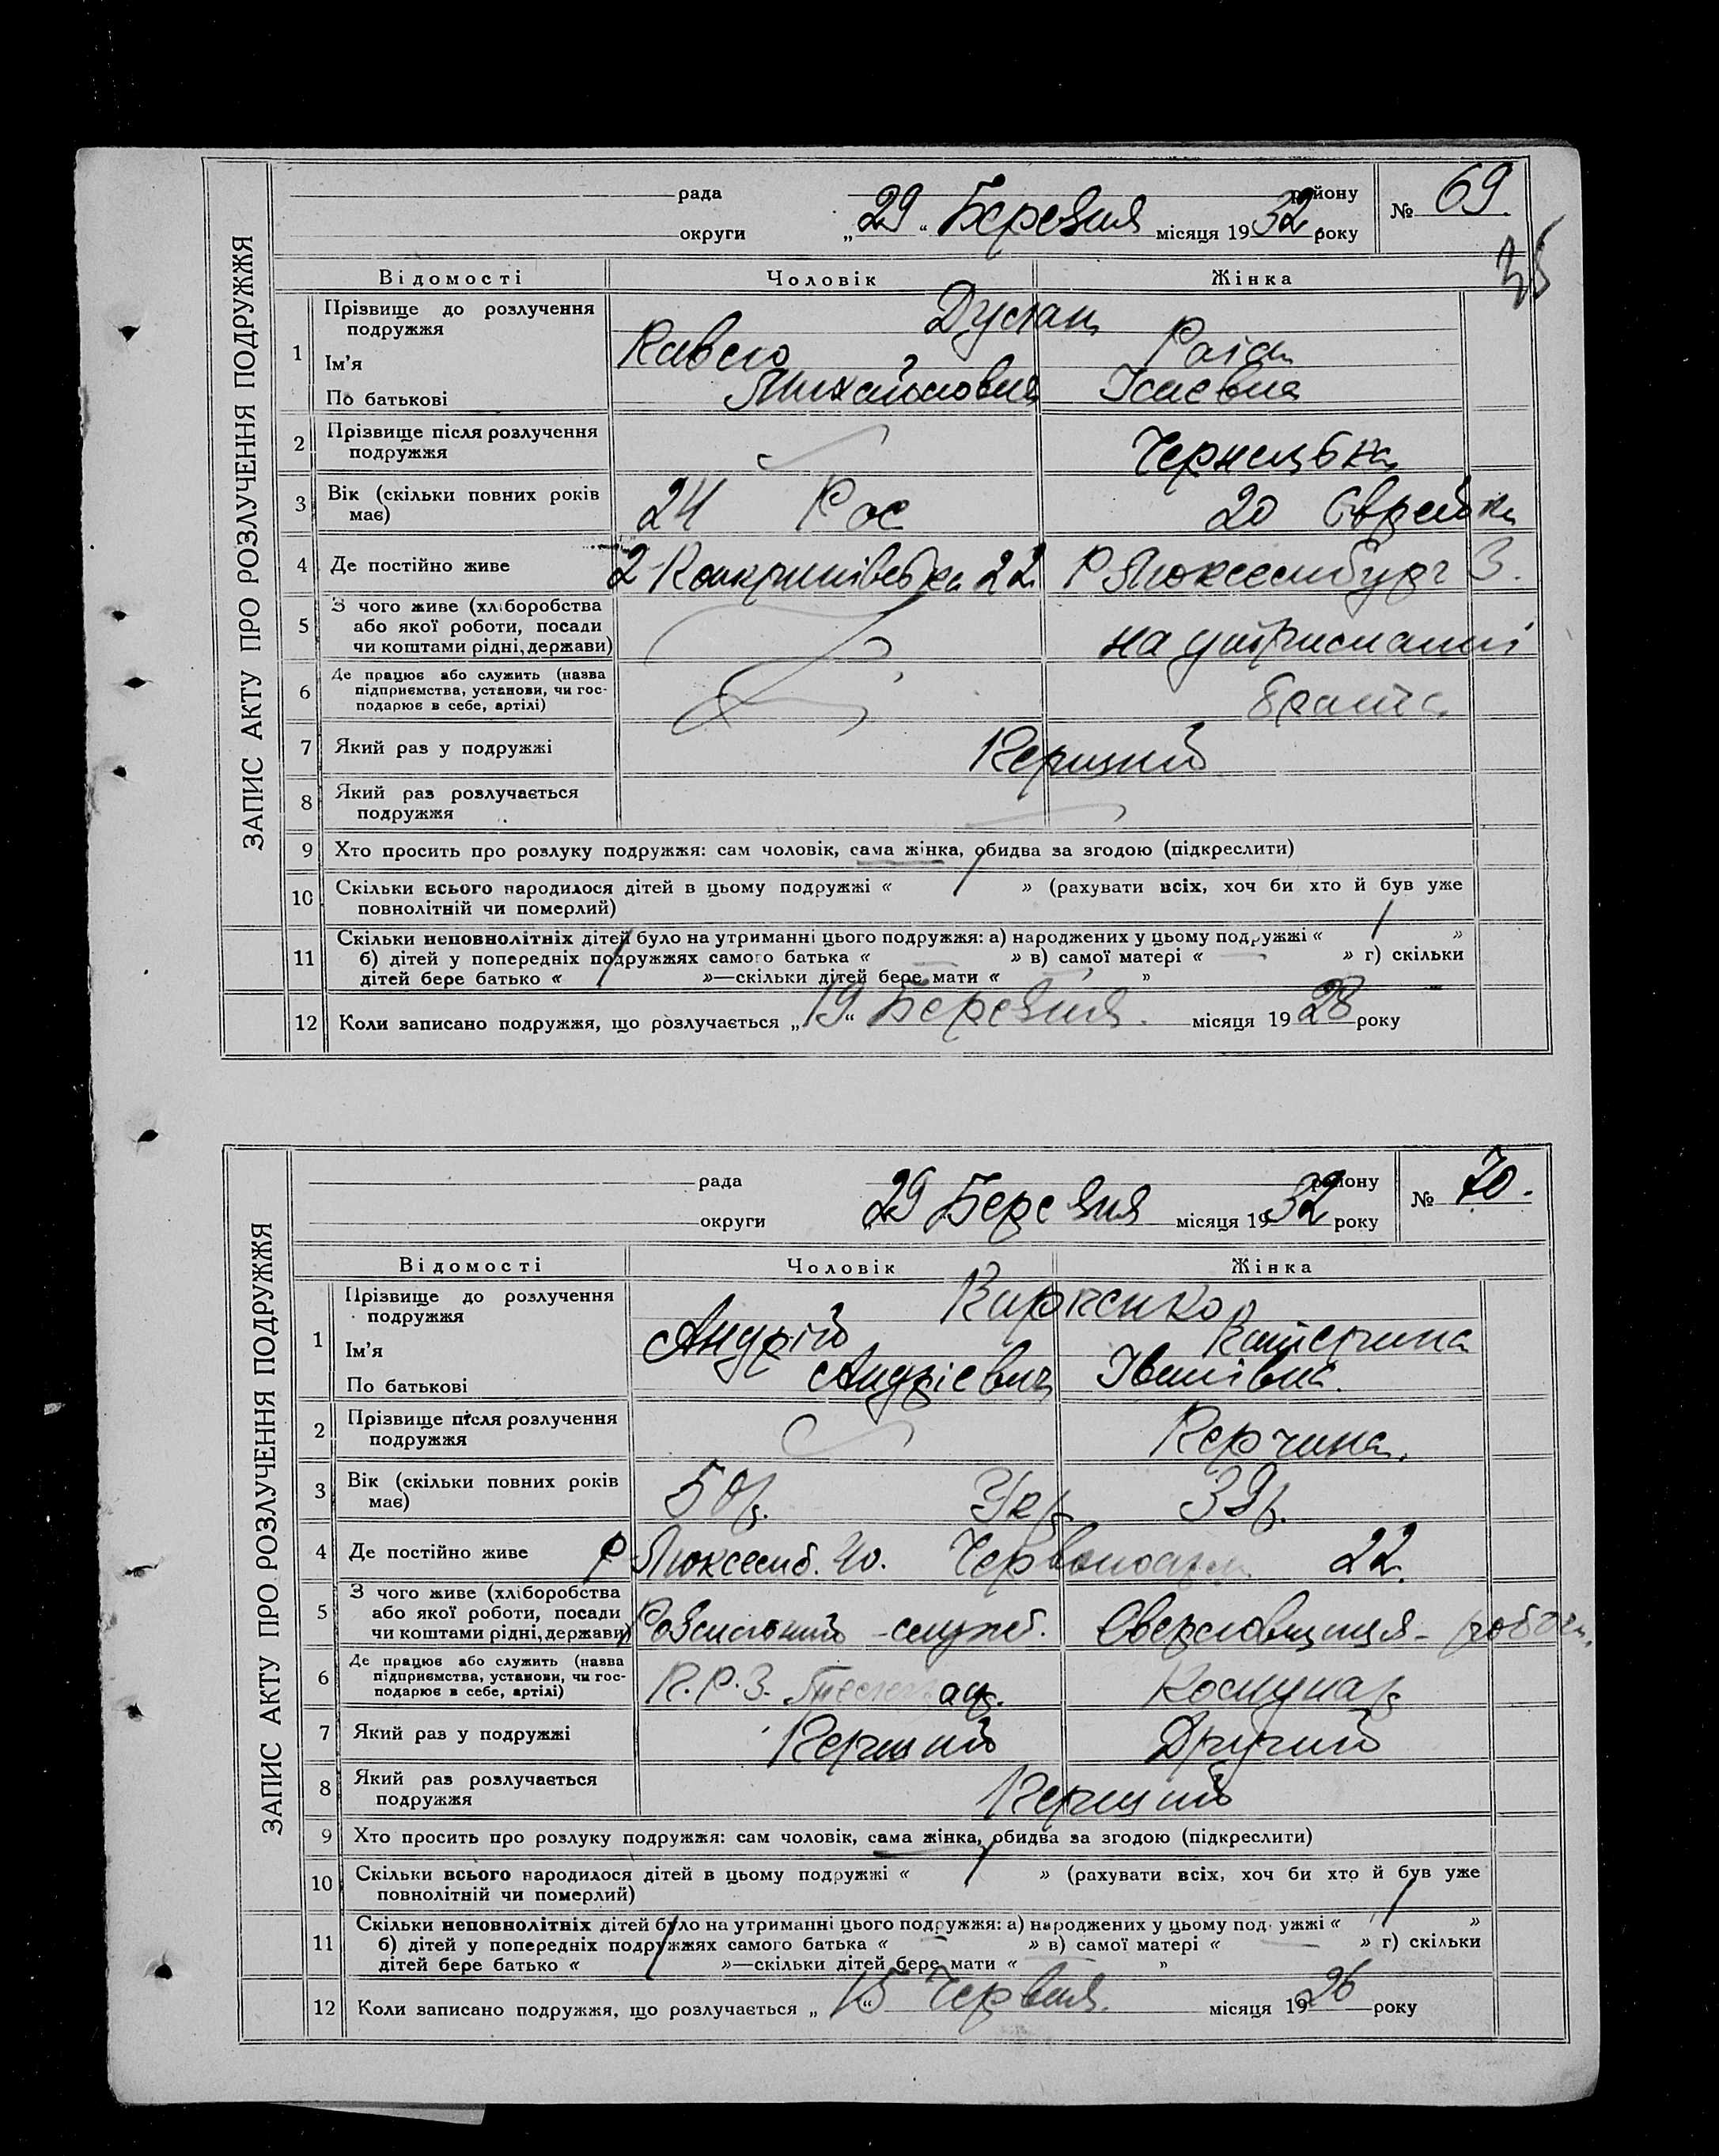 ЗАПИС АКТУ ПРО РОЗЛУЧЕННЯ ПОДРУЖЖЯ
рада району
округи „29“ Березня місяця 1932 року
№ 69.
Відомості Чоловік Жінка
1 Прізвище до розлучення подружжя
Ім’я Павло Раїа
По батькові Михайлович Ісаєвна
2 Прізвище після розлучення подружжя Чернецька
3 Вік (скільки повних років має) 24 Рос 20 Єврейка
4 Де постійно живе 22 Р Люксембург 3.
5 З чого живе (хліборобства або якої роботи, посади чи коштами рідні, держави) на утриманні
6 Де працює або служить (назва підприємства, установи, чи господарює в себе, артілі) брата
7 Який раз у подружжі Перший
8 Який раз розлучається подружжя
9 Хто просить про розлуку подружжя: сам чоловік, сама жінка, обидва за згодою (підкреслити)
10 Скільки всього народилося дітей в цьому подружжі « » (рахувати всіх, хоч би хто й був уже
повнолітній чи померлий)
11 Скільки неповнолітніх дітей було на утриманні цього подружжя: а) народжених у цьому подружжі « »
б) дітей у попередніх подружжях самого батька « » в) самої матері « » г) скільки
дітей бере батько « »—скільки дітей бере мати « »
12 Коли записано подружжя, що розлучається „19“ Березня. місяця 1928 року
ЗАПИС АКТУ ПРО РОЗЛУЧЕННЯ ПОДРУЖЖЯ
рада району
округи 29 Березня місяця 1932 року
№ 70.
Відомості Чоловік Жінка
1 Прізвище до розлучення подружжя
Ім’я Андрій Катерина
По батькові Андрієвич Іванівна.
2 Прізвище після розлучення подружжя Перчина.
3 Вік (скільки повних років має) 50р. Укр 39р.
4 Де постійно живе Р Люксемб. 40. 22.
5 З чого живе (хліборобства або якої роботи, посади чи коштами рідні, держави) Розсильний - служб. Сверловщиця - робочн.
6 Де працює або служить (назва підприємства, установи, чи господарює в себе, артілі) П.Р.З. Комунар
7 Який раз у подружжі Перший Другий
8 Який раз розлучається подружжя Перший
9 Хто просить про розлуку подружжя: сам чоловік, сама жінка, обидва за згодою (підкреслити)
10 Скільки всього народилося дітей в цьому подружжі « » (рахувати всіх, хоч би хто й був уже
повнолітній чи померлий)
11 Скільки неповнолітніх дітей було на утриманні цього подружжя: а) народжених у цьому подружжі « »
б) дітей у попередніх подружжях самого батька « » в) самої матері « » г) скільки
дітей бере батько « »—скільки дітей бере мати « »
12 Коли записано подружжя, що розлучається „15“ Червня. місяця 1926 року